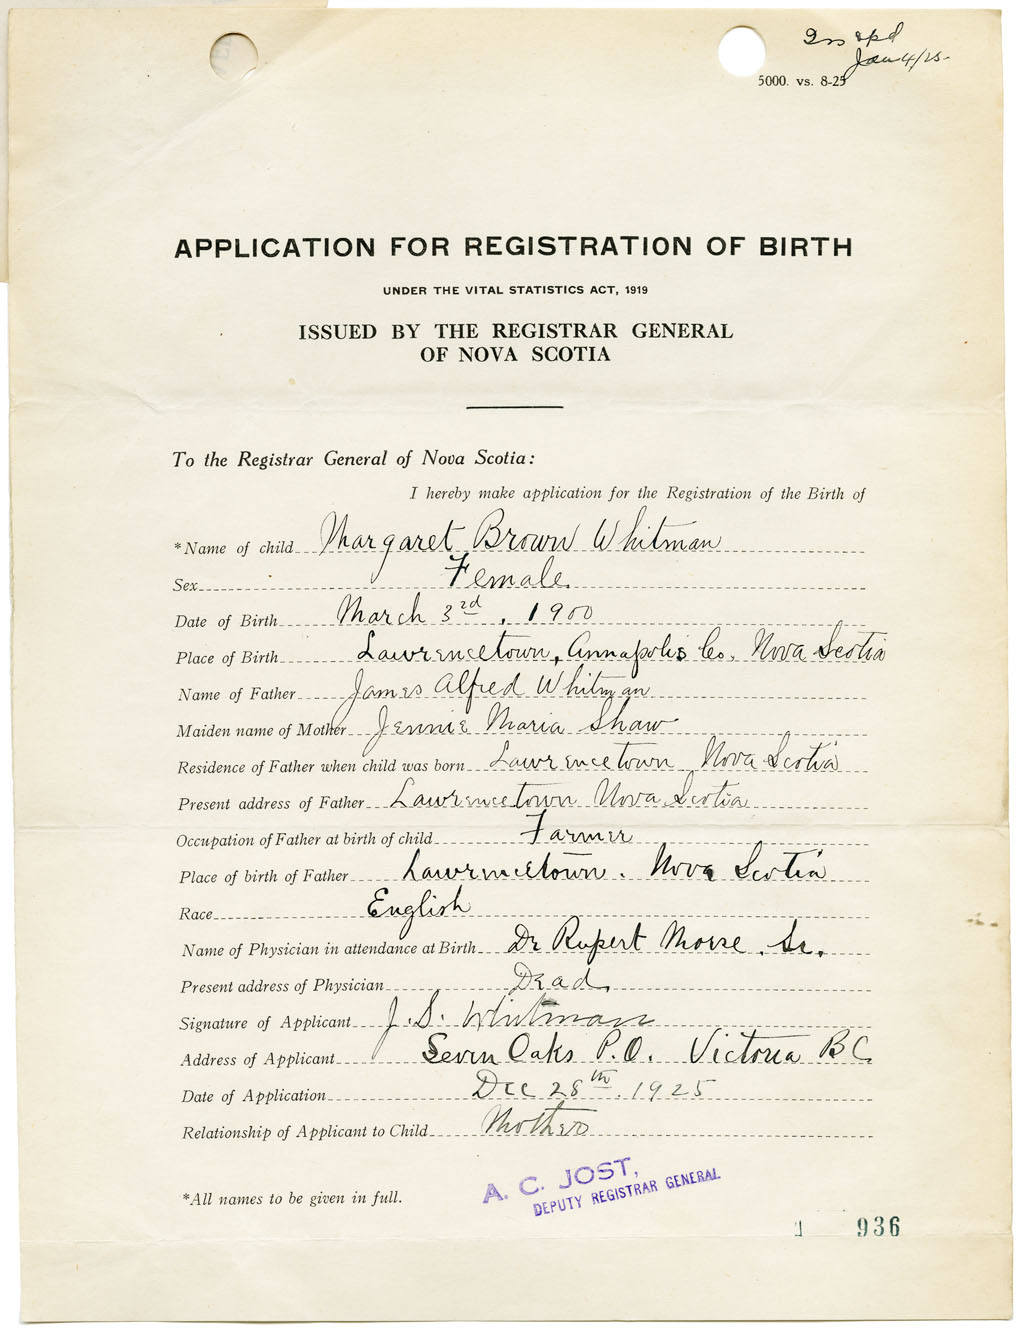 Jan 4/25.
5000. vs. 8-25
APPLICATION FOR REGISTRATION OF BIRTH
UNDER THE VITAL STATISTICS ACT, 1919
ISSUED BY THE REGISTRAR GENERAL
OF NOVA SCOTIA
To the Registrar General of Nova Scotia:
I hereby make application for the Registration of the Birth of
*Name of child Margaret Brown Whitman
Sex Female
Date of Birth March 3rd, 1900
Place of Birth Lawrencetown, Annapolis Co. Nova Scotia
Name of Father James Alfred Whitman
Maiden name of Mother Jennie Maria Shaw
Residence of Father when child was born Lawrencetown Nova Scotia
Present address of Father Lawrencetown Nova Scotia
Occupation of Father at birth of child Farmer
Place of birth of Father Lawrencetown. Nova Scotia
Race English
Name of Physician in attendance at Birth Dr Rupert Morse. Sr.
Present address of Physician Dead
Signature of Applicant J. S. Whitman
Address of Applicant Seven Oaks P.O. Victoria B C
Date of Application Dec 28th. 1925
Relationship of Applicant to Child Mother
A. C. JOST,
DEPUTY REGISTRAR GENERAL
*All names to be given in full.
1 936